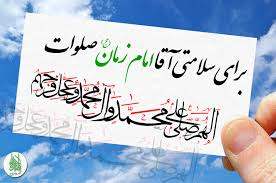 برای سلامتی آقا امام زمان صلوات
اللهم صل علی محمد و آل محمد و عجل فرجهم